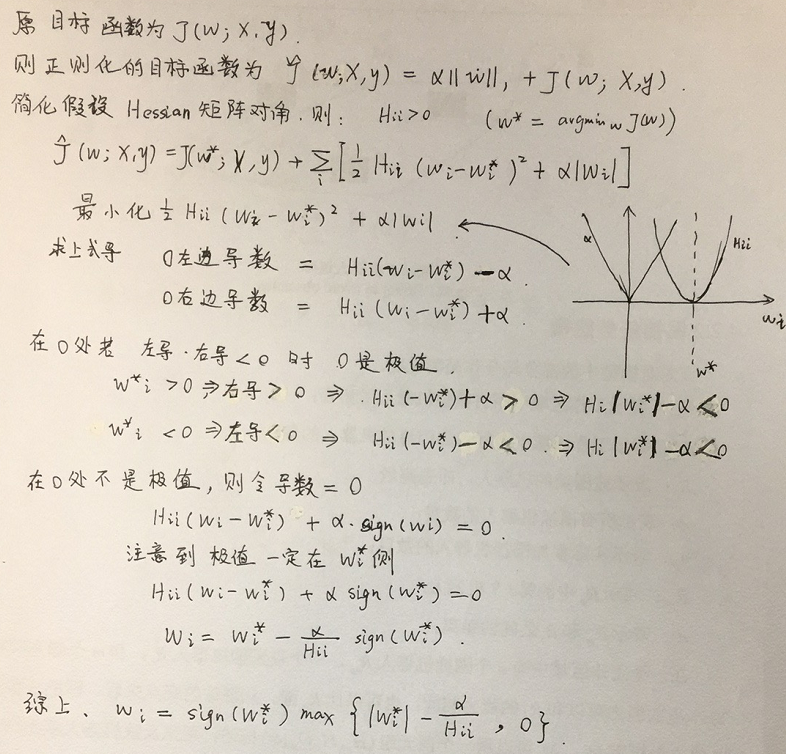 原目标函数为 J(w; X, y).
则正则化的目标函数为 Ĵ(w; X, y) = α||w||₁ + J(w; X, y).
简化假设 Hessian 矩阵对角. 则: Hii>0 (w* = argmin_w J(w))
Ĵ(w; X, y) = J(w*; X, y) + Σ_i [½ Hii (wi-wi*)² + α|wi|]
最小化 ½ Hii (wi - wi*)² + α|wi|
求上式导 0左边导数 = Hii(wi-wi*) - α.
0右边导数 = Hii (wi-wi*) + α.
α
Hii
wi
w*
在0处若 左导·右导<0 时 0是极值.
w*i >0 ⇒ 右导>0 ⇒ Hii(-wi*)+α > 0 ⇒ Hi|wi*|-α<0
w*i <0 ⇒ 左导<0 ⇒ Hii(-wi*)-α<0. ⇒ Hi|wi*|-α<0
在0处不是极值, 则令导数=0
Hii(wi-wi*) + α·sign(wi) = 0.
注意到 极值一定在 wi*侧
Hii(wi-wi*) + α sign(wi*)=0
wi = wi* - α/Hii sign(wi*).
综上、 wi = sign(wi*) max {|wi*| - α/Hii , 0}.